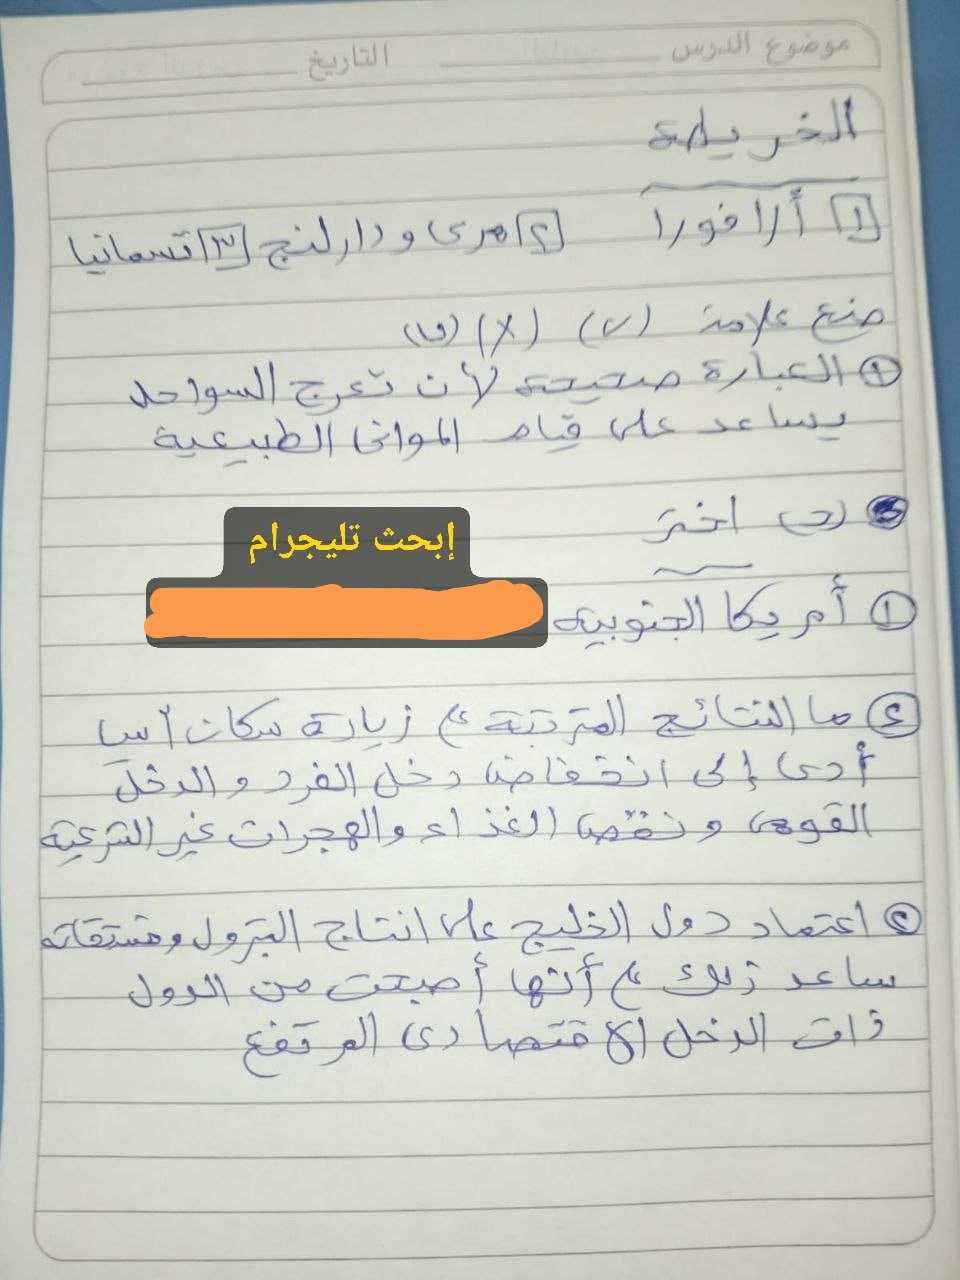 موضوع الدرس التاريخ
الخريطة
[١] أرافورا [٢] مرى ودارلنج [٣] تسمانيا
ضع علامة (✓) (X) (ب)
① العبارة صحيحة لأن تعرج السواحل
يساعد على قيام الموانى الطبيعية
(ج) اختر
إبحث تليجرام
① أمريكا الجنوبية
② ما النتائج المترتبة على زيارة سكان آسيا
أدى إلى انخفاض دخل الفرد والدخل
القومى ونقص الغذاء والهجرات غير الشرعية
② اعتماد دول الخليج على انتاج البترول ومشتقاته
ساعد ذلك على أنها أصبحت من الدول
ذات الدخل الاقتصادى المرتفع